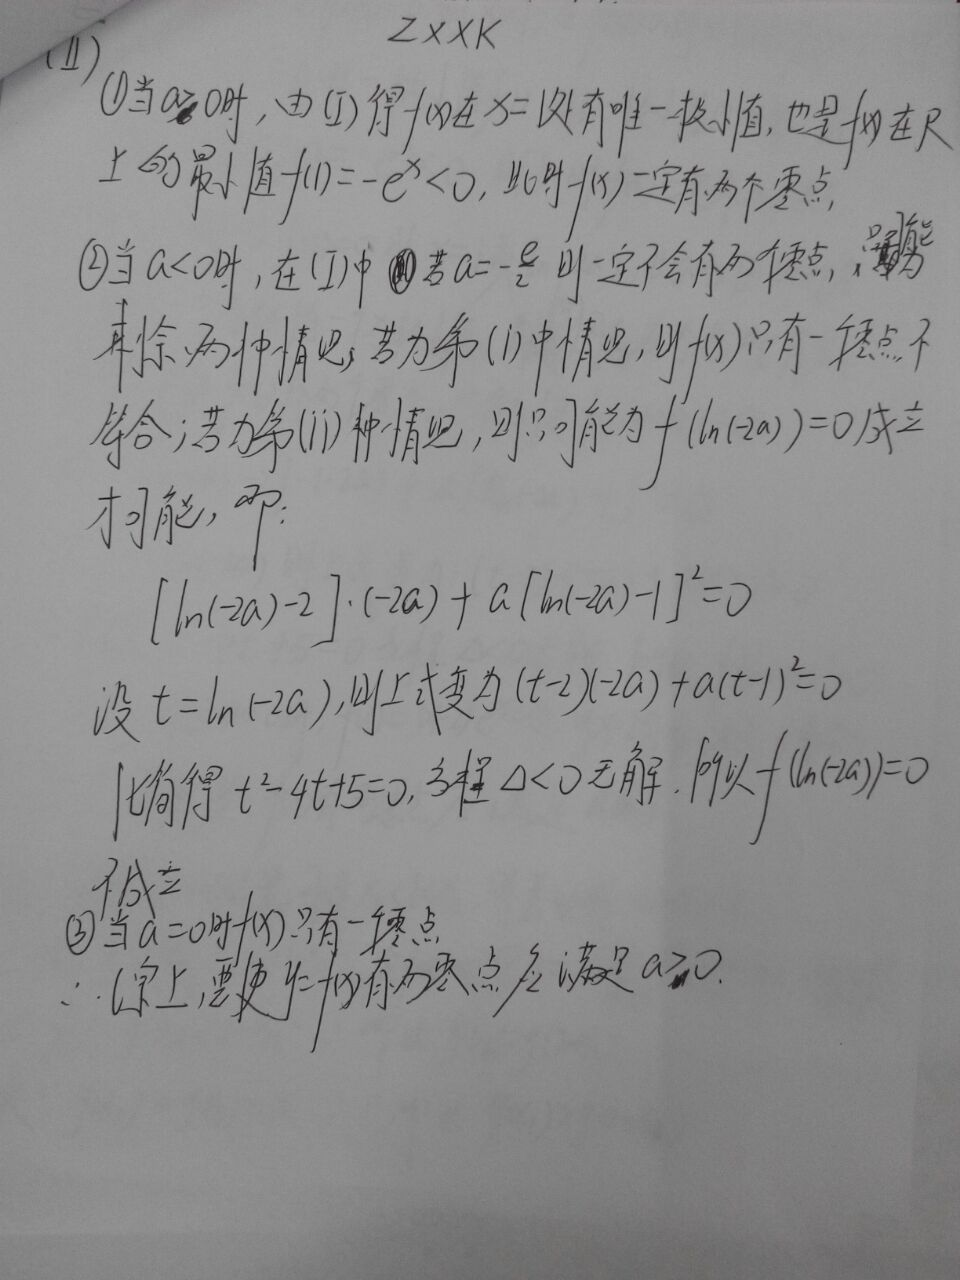 ZXXK
(Ⅱ)
①当a>0时，由(Ⅰ)得f(x)在x=1处有唯一极小值，也是f(x)在R
上的最小值f(1)=-eˣ<0，此时f(x)一定有两个零点，
②当a<0时，在(Ⅰ)中若a=-e/2时一定不会有两个零点，只可能为
剩余两种情况，若为第(i)中情况，则f(x)只有一个零点，不
符合；若为第(ii)种情况，则只可能为f(ln(-2a))=0成立
才可能，即：
[ln(-2a)-2]·(-2a)+a[ln(-2a)-1]²=0
设t=ln(-2a)，则上式变为(t-2)(-2a)+a(t-1)²=0
化简得t²-4t+5=0，方程Δ<0无解．所以f(ln(-2a))=0
不成立
③当a=0时f(x)只有一个零点
∴综上，要使y=f(x)有两零点应满足a>0．